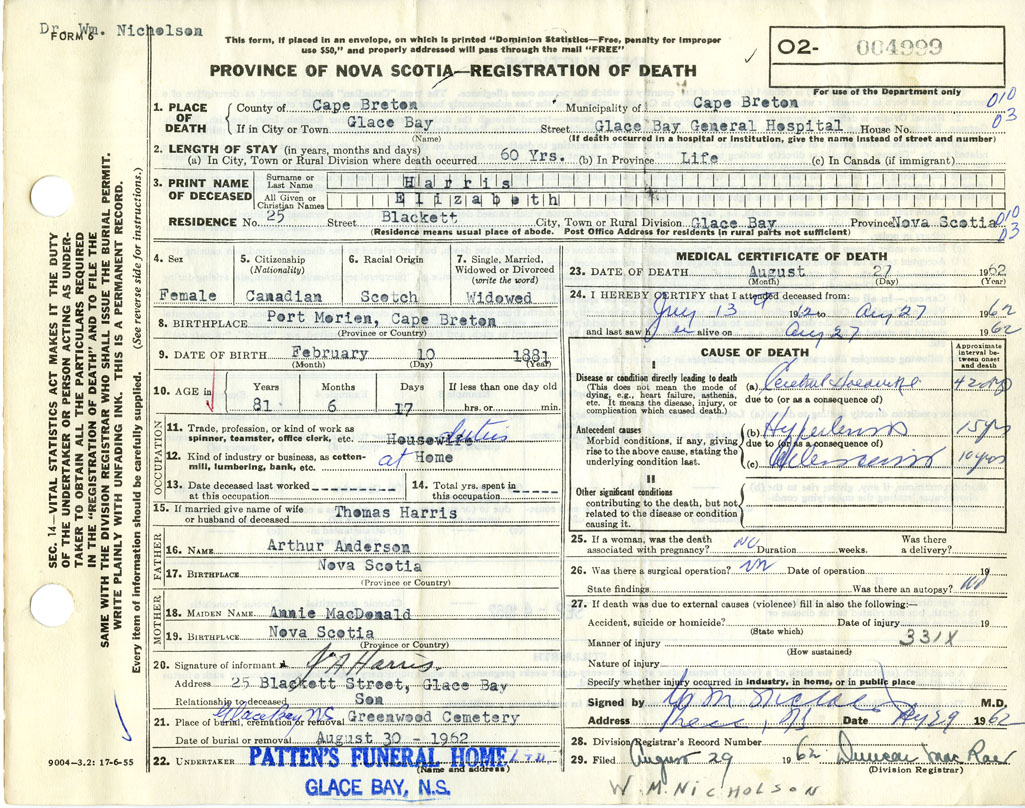 Dr. Wm. Nicholson
FORM 6
This form, if placed in an envelope, on which is printed "Dominion Statistics—Free, penalty for improper
use $50," and properly addressed will pass through the mail "FREE"
O2- 004999
PROVINCE OF NOVA SCOTIA—REGISTRATION OF DEATH
For use of the Department only
1. PLACE OF DEATH
County of Cape Breton Municipality of Cape Breton 010
If in City or Town Glace Bay Street Glace Bay General Hospital House No. 03
(Name) (If death occurred in a hospital or institution, give the name instead of street and number)
2. LENGTH OF STAY (in years, months and days)
(a) In City, Town or Rural Division where death occurred 60 Yrs. (b) In Province Life (c) In Canada (if immigrant)
3. PRINT NAME OF DECEASED
Surname or Last Name Harris
All Given or Christian Names Elizabeth
RESIDENCE No. 25 Street Blackett City, Town or Rural Division Glace Bay Province Nova Scotia 010 03
(Residence means usual place of abode. Post Office Address for residents in rural parts not sufficient)
4. Sex
Female
5. Citizenship
(Nationality)
Canadian
6. Racial Origin
Scotch
7. Single, Married,
Widowed or Divorced
(write the word)
Widowed
8. BIRTHPLACE Port Morien, Cape Breton
(Province or Country)
9. DATE OF BIRTH February 10 1881
(Month) (Day) (Year)
10. AGE in
Years Months Days If less than one day old
81 6 17 hrs. or min.
OCCUPATION
11. Trade, profession, or kind of work as
spinner, teamster, office clerk, etc. Housewife
12. Kind of industry or business, as cotton-
mill, lumbering, bank, etc. at Home
13. Date deceased last worked
at this occupation
14. Total yrs. spent in
this occupation
15. If married give name of wife
or husband of deceased Thomas Harris
FATHER
16. NAME Arthur Anderson
17. BIRTHPLACE Nova Scotia
(Province or Country)
MOTHER
18. MAIDEN NAME Annie MacDonald
19. BIRTHPLACE Nova Scotia
(Province or Country)
20. Signature of informant J A Harris.
Address 25 Blackett Street, Glace Bay
Relationship to deceased Son
21. Place of burial, cremation or removal Glace Bay N.S. Greenwood Cemetery
Date of burial or removal August 30 - 1962
22. UNDERTAKER PATTEN'S FUNERAL HOME
(Name and address)
GLACE BAY, N.S.
9004—3.2: 17-6-55
MEDICAL CERTIFICATE OF DEATH
23. DATE OF DEATH August 27 1962
(Month) (Day) (Year)
24. I HEREBY CERTIFY that I attended deceased from:
13 1962 to Aug 27 1962
and last saw h er alive on Aug 27 1962
CAUSE OF DEATH
Approximate
interval be-
tween onset
and death
I
Disease or condition directly leading to death
(This does not mean the mode of
dying, e.g., heart failure, asthenia,
etc. It means the disease, injury, or
complication which caused death.)
(a) Cerebral
due to (or as a consequence of)
Antecedent causes
Morbid conditions, if any, giving
rise to the above cause, stating the
underlying condition last.
(b) Hypertension 15 yrs
due to (or as a consequence of)
(c) 10 yrs
II
Other significant conditions
contributing to the death, but not
related to the disease or condition
causing it.
25. If a woman, was the death
associated with pregnancy? NO Duration weeks. Was there
a delivery?
26. Was there a surgical operation? Date of operation 19
State findings Was there an autopsy? No
27. If death was due to external causes (violence) fill in also the following:—
Accident, suicide or homicide? Date of injury 19
(State which)
Manner of injury 331X
(How sustained)
Nature of injury
Specify whether injury occurred in industry, in home, or in public place
Signed by W M Nicholson M.D.
Address Date Aug 29 1962
28. Division Registrar's Record Number
29. Filed August 29 1962 Duncan MacRae
(Division Registrar)
W.M. NICHOLSON
SEC. 14—VITAL STATISTICS ACT MAKES IT THE DUTY
OF THE UNDERTAKER OR PERSON ACTING AS UNDER-
TAKER TO OBTAIN ALL THE PARTICULARS REQUIRED
IN THE "REGISTRATION OF DEATH" AND TO FILE THE
SAME WITH THE DIVISION REGISTRAR WHO SHALL ISSUE THE BURIAL PERMIT.
WRITE PLAINLY WITH UNFADING INK. THIS IS A PERMANENT RECORD.
Every item of information should be carefully supplied. (See reverse side for instructions.)